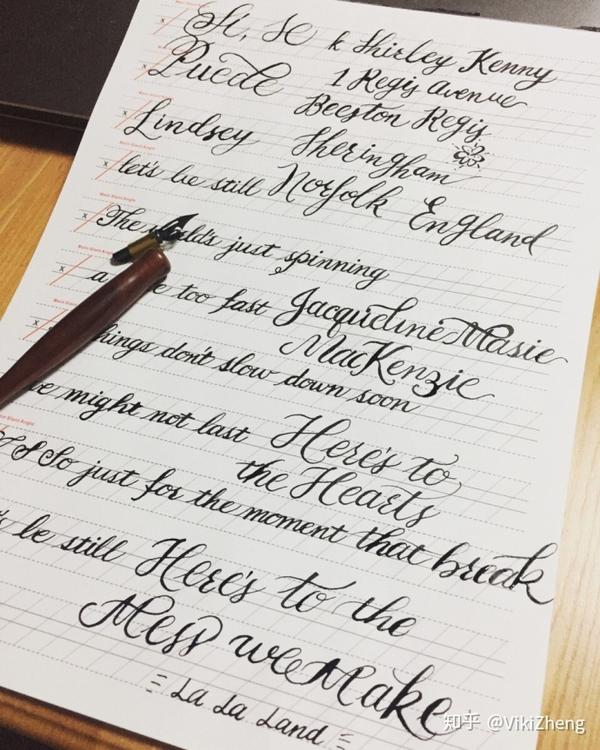 k Shirley Kenny
Puede 1 Regis avenue
Beeston Regis
Lindsey Sheringham
let's be still Norfolk England
The world's just spinning
a too fast Jacqueline Masie
MacKenzie
things don't slow down soon
we might not last Here's to
the Hearts
So just for the moment that break
be still Here's to the
Mess we Make
La La Land
知乎 @VikiZheng